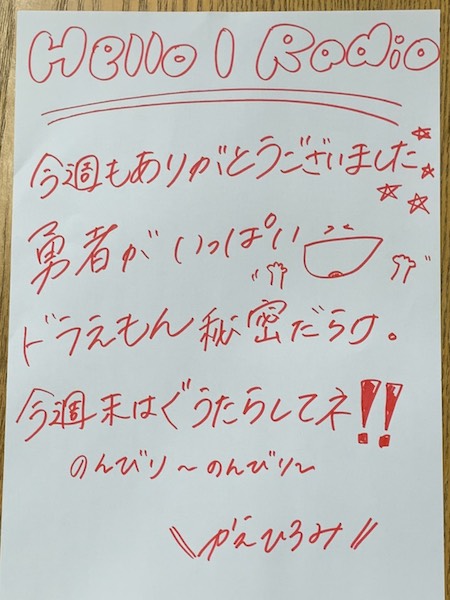 Hello I Radio
今週もありがとうございました
勇者がいっぱい
ドラえもん秘密だらけ。
今週末はぐうたらしてネ!!
のんびり〜のんびり〜
\\かえひろみ//